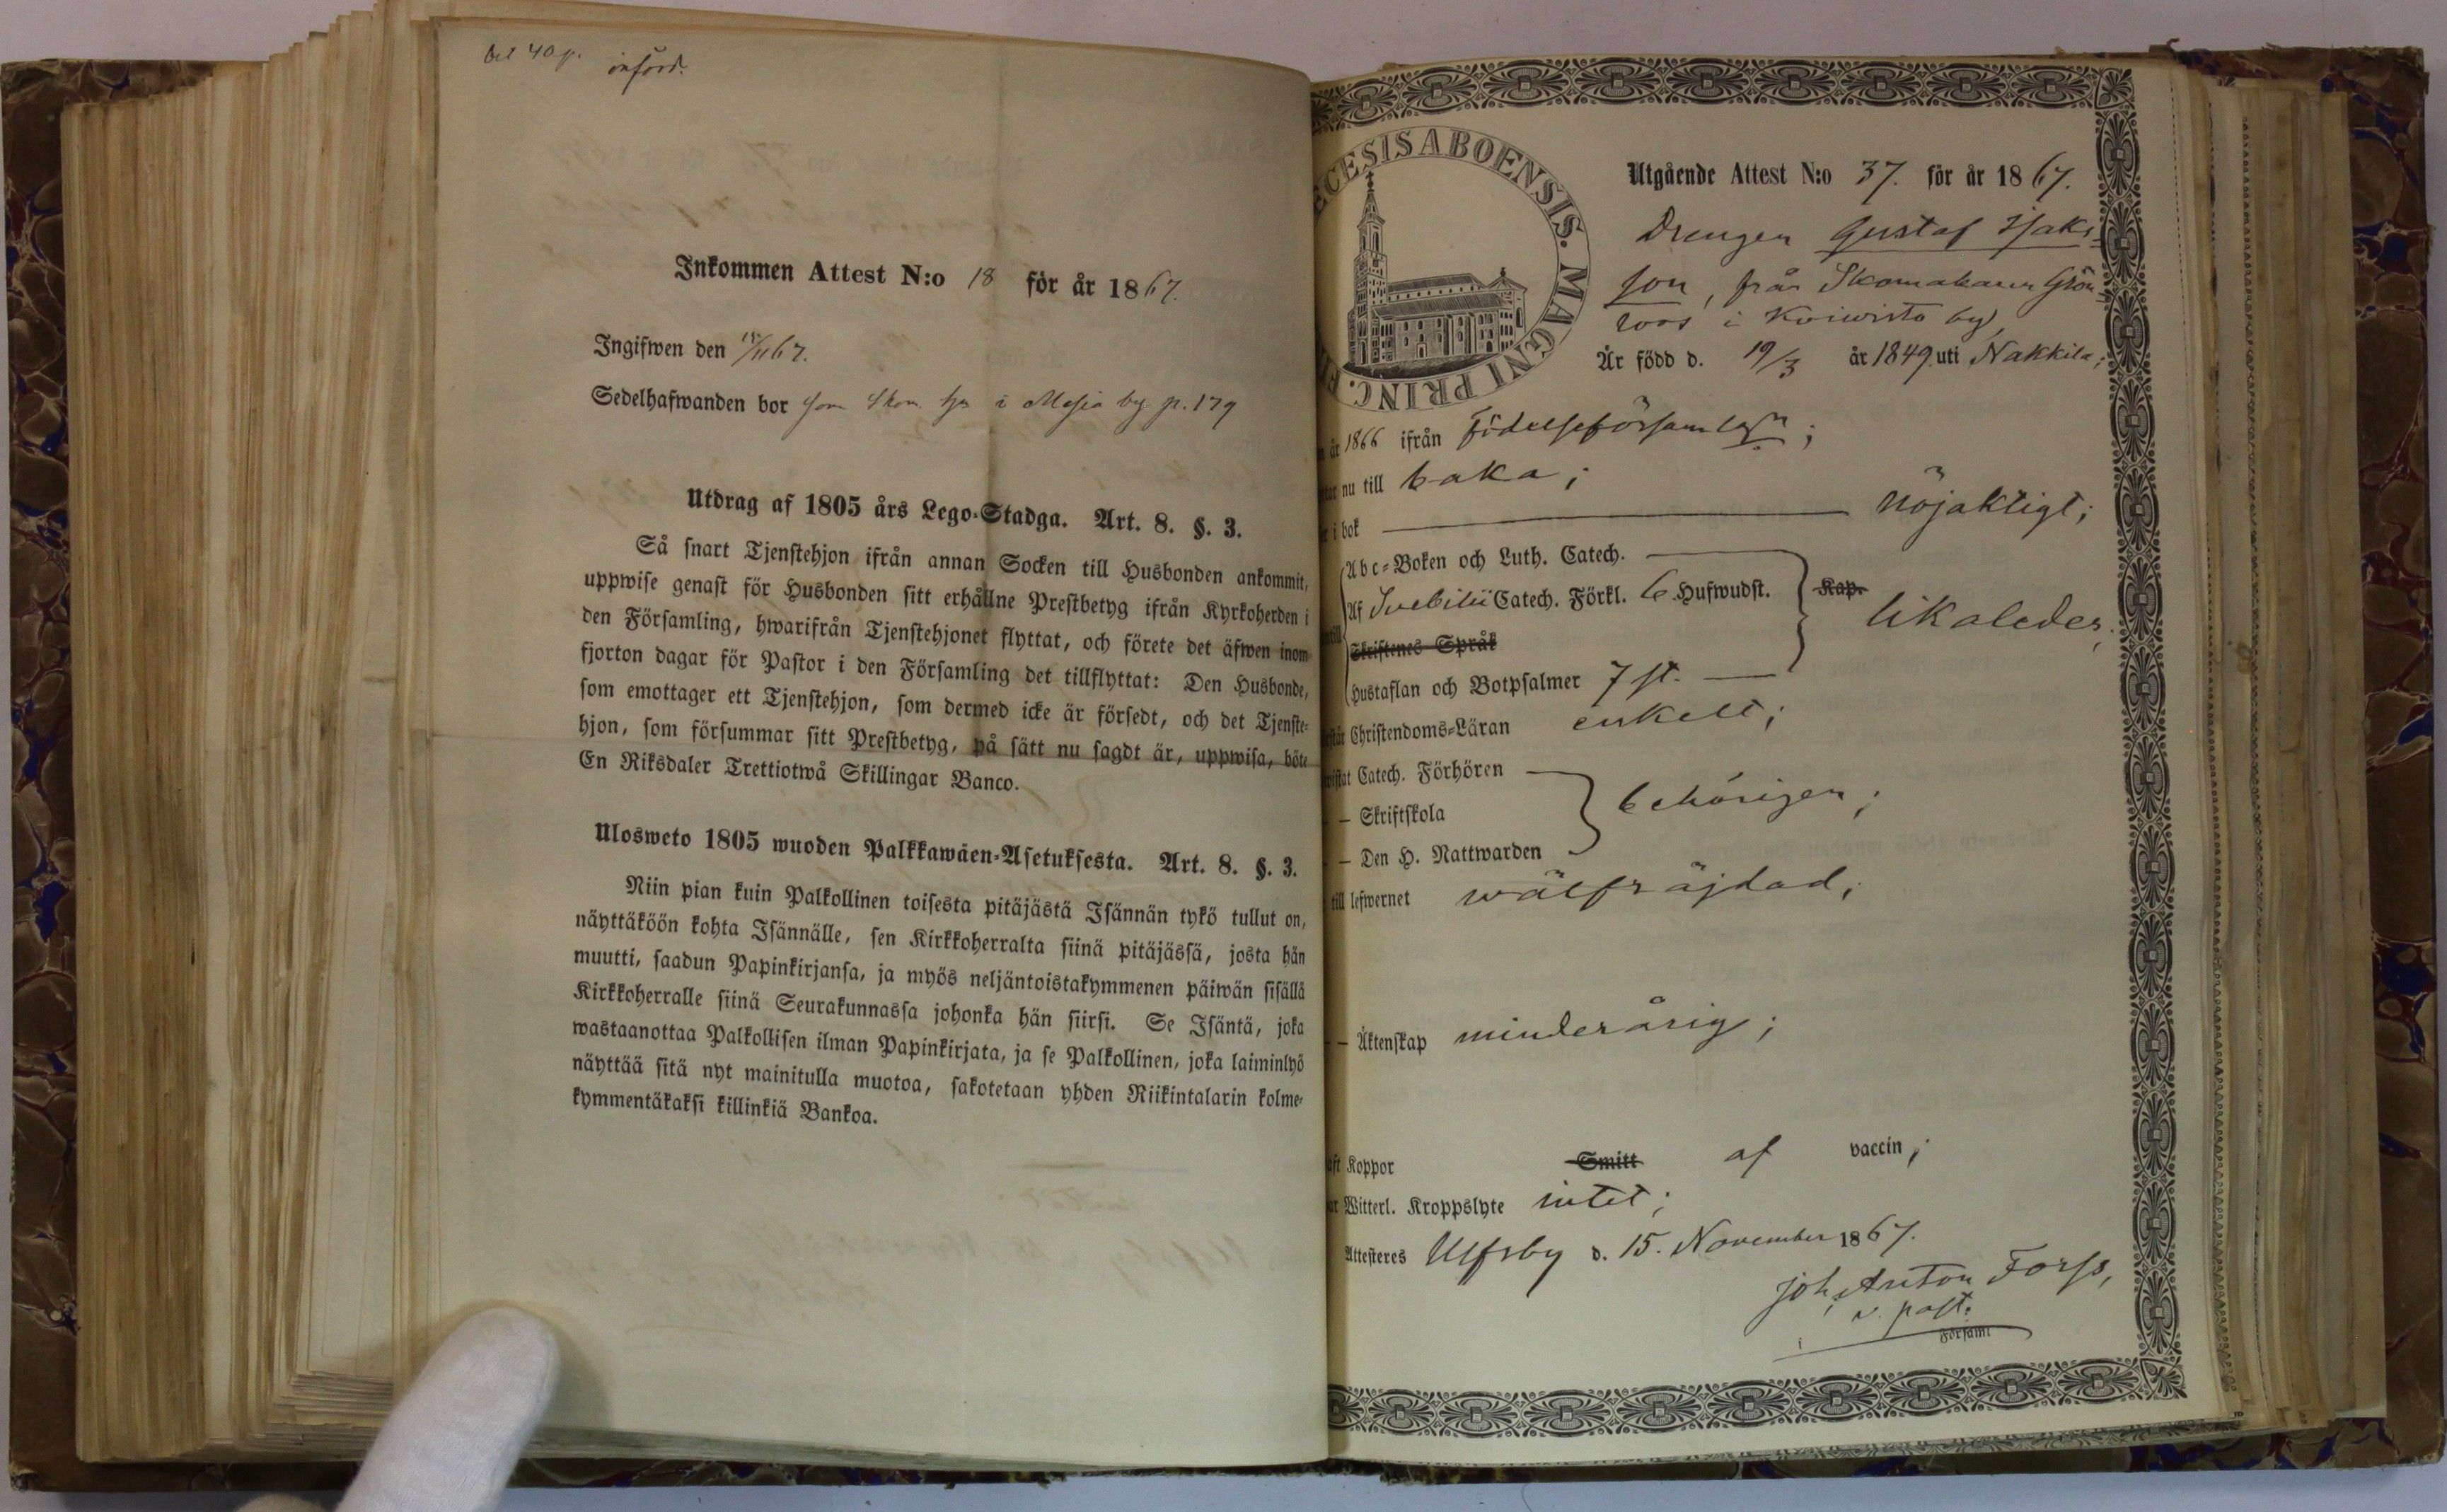 bet 40 p. införd.
Inkommen Attest N:o 18 för år 1867.
Ingifwen den 15/11 67.
Sedelhafwanden bor som Skom. hjs i Masia by p. 179
Utdrag af 1805 års Lego-Stadga. Art. 8. §. 3.
Så snart Tjenstehjon ifrån annan Socken till Husbonden ankommit,
uppwise genast för Husbonden sitt erhållne Prestbetyg ifrån Kyrkoherden i
den Församling, hwarifrån Tjenstehjonet flyttat, och förete det äfwen inom
fjorton dagar för Pastor i den Församling det tillflyttat: Den Husbonde,
som emottager ett Tjenstehjon, som dermed icke är försedt, och det Tjenste-
hjon, som försummar sitt Prestbetyg, på sätt nu sagdt är, uppwisa, böte
En Riksdaler Trettiotwå Skillingar Banco.
Ulosweto 1805 wuoden Palkkawäen-Asetuksesta. Art. 8. §. 3.
Niin pian kuin Palkollinen toisesta pitäjästä Isännän tykö tullut on,
näyttäköön kohta Isännälle, sen Kirkkoherralta siinä pitäjässä, josta hän
muutti, saadun Papinkirjansa, ja myös neljäntoistakymmenen päiwän sisällä
Kirkkoherralle siinä Seurakunnassa johonka hän siirsi. Se Isäntä, joka
wastaanottaa Palkollisen ilman Papinkirjata, ja se Palkollinen, joka laiminlyö
näyttää sitä nyt mainitulla muotoa, sakotetaan yhden Riikintalarin kolme-
kymmentäkaksi killinkiä Bankoa.
ECESIS ABOENSIS. MAGNI PRINC. FI
Utgående Attest N:o 37. för år 1867.
Drengen Gustaf Isaks-
son, från Skomakaren Grön-
roos i Koiwisto by,
Är född d. 19/3 år 1849 uti Nakkila;
år 1866 ifrån Födelseförsamlgn;
nu till baka;
i bok nöjaktigt;
Abc-Boken och Luth. Catech.
Af Svebilii Catech. Förkl. 6 Hufwudst. Kap. likaledes;
Skriftenes Språk
Hustaflan och Botpsalmer 7 st.
Christendoms-Läran enkelt;
Catech. Förhören
— Skriftskola behörigen;
— Den H. Nattwarden
till lefwernet wälfräjdad;
— Äktenskap minderårig;
Koppor Smitt af vaccin;
Witterl. Kroppslyte intet;
Attesteres Ulfsby d. 15. November 1867.
Joh. Anton Forss,
v. past.
i Församl